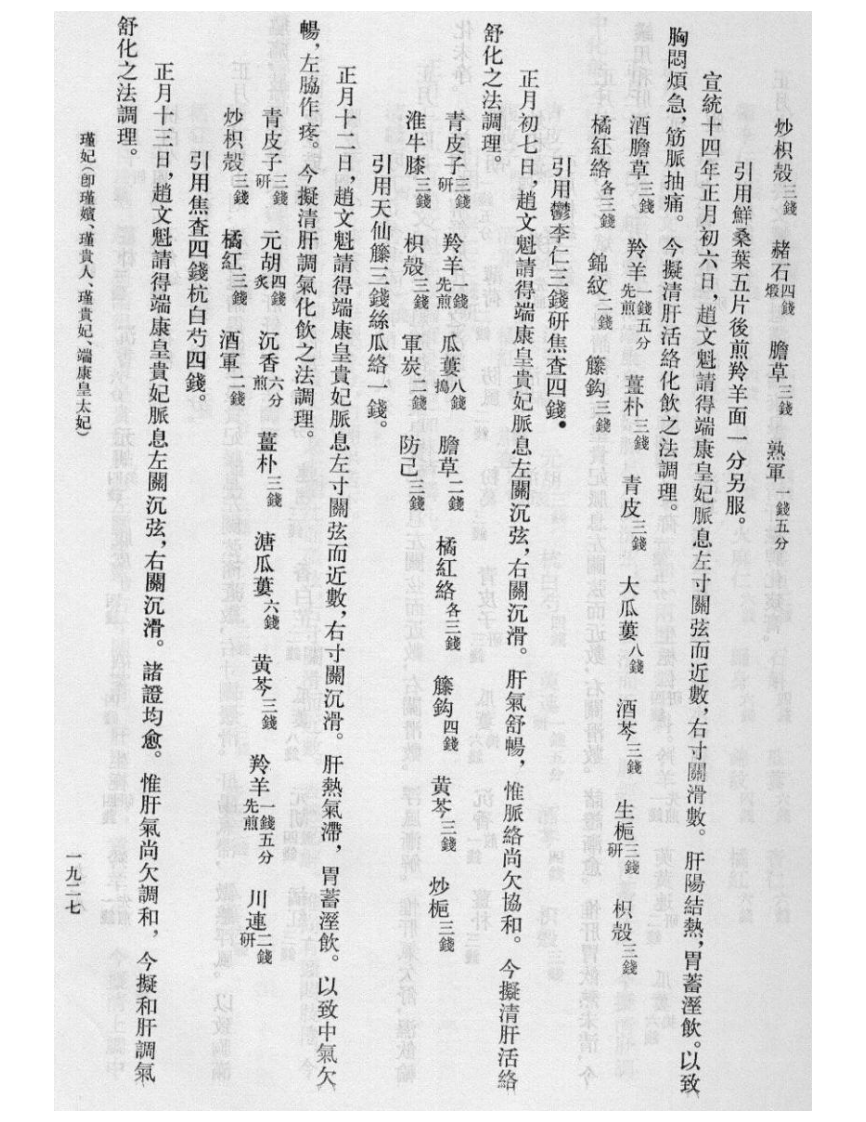 炒枳殼三錢　赭石四錢煅　膽草三錢　熟軍一錢五分
引用鮮桑葉五片後煎羚羊面一分另服。
宣統十四年正月初六日，趙文魁請得端康皇妃脈息左寸關弦而近數，右寸關滑數。肝陽結熱，胃蓄溼飲。以致
胸悶煩急，筋脈抽痛。今擬清肝活絡化飲之法調理。
酒膽草三錢　羚羊一錢五分先煎　薑朴三錢　青皮三錢　大瓜蔞八錢　酒芩三錢　生梔三錢研　枳殼三錢
橘紅絡各三錢　錦紋二錢　籐鈎三錢
引用鬱李仁三錢研焦查四錢。
正月初七日，趙文魁請得端康皇貴妃脈息左關沉弦，右關沉滑。肝氣舒暢，惟脈絡尚欠協和。今擬清肝活絡
舒化之法調理。
青皮子三錢研　羚羊一錢先煎　瓜蔞八錢搗　膽草二錢　橘紅絡各三錢　籐鈎四錢　黄芩三錢　炒梔三錢
淮牛膝三錢　枳殼三錢　軍炭二錢　防己三錢
引用天仙籐三錢絲瓜絡一錢。
正月十二日，趙文魁請得端康皇貴妃脈息左寸關弦而近數，右寸關沉滑。肝熱氣滯，胃蓄溼飲。以致中氣欠
暢，左脇作疼。今擬清肝調氣化飲之法調理。
青皮子三錢研　元胡四錢炙　沉香六分煎　薑朴三錢　溏瓜蔞六錢　黄芩三錢　羚羊一錢五分先煎　川連二錢研
炒枳殼三錢　橘紅三錢　酒軍二錢
引用焦查四錢杭白芍四錢。
正月十三日，趙文魁請得端康皇貴妃脈息左關沉弦，右關沉滑。諸證均愈。惟肝氣尚欠調和，今擬和肝調氣
舒化之法調理。
瑾妃（卽瑾嬪、瑾貴人、瑾貴妃、端康皇太妃）
一九二七